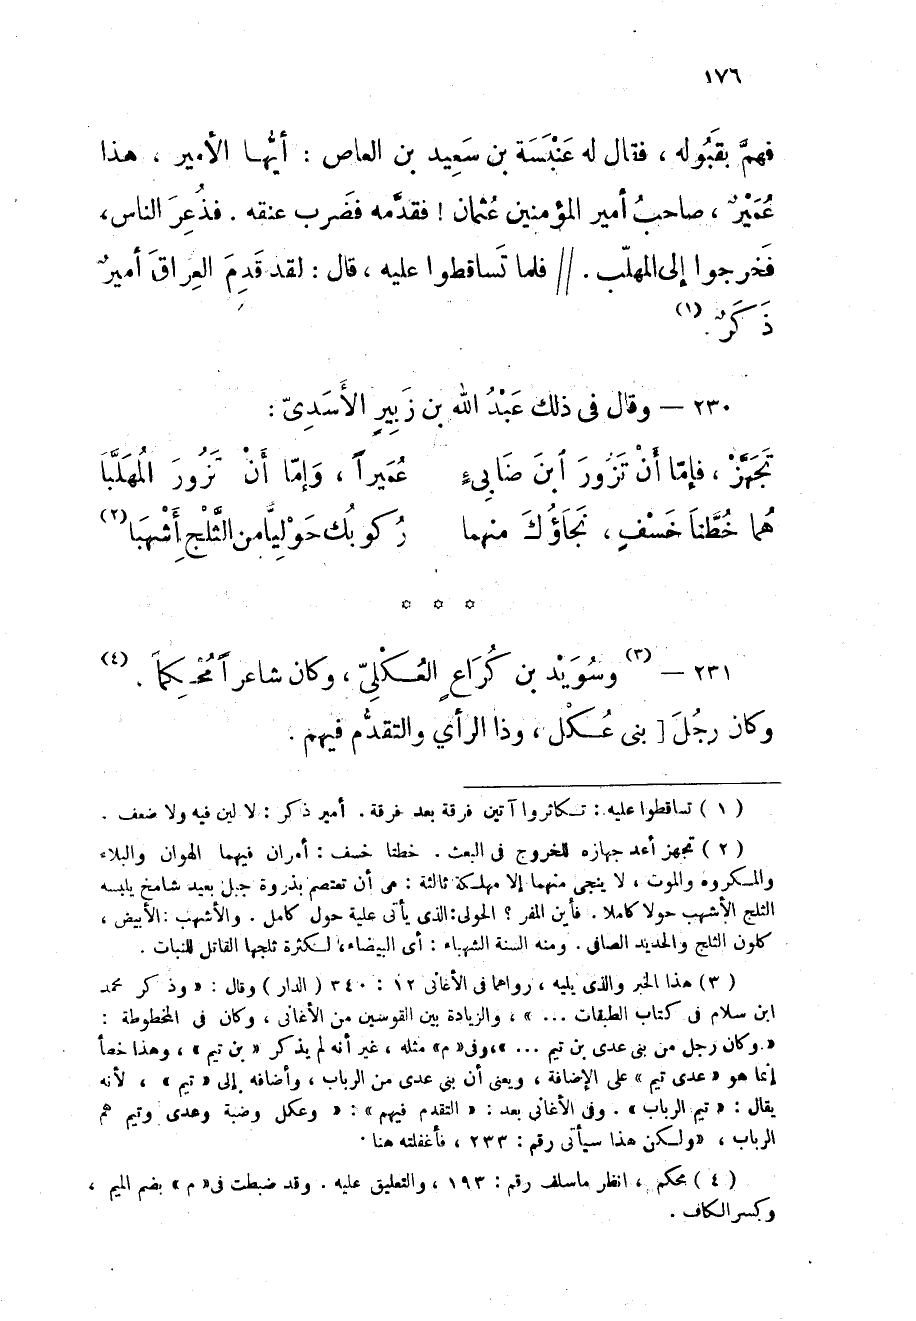 ١٧٦
فهمَّ بقَبُوله ، فقال له عَنْبَسَة بن سَعِيد بن العاص : أيُّها الأمير ، هذا
عُمَيْرٌ ، صاحبُ أمير المؤمنين عُثمان ! فقدَّمه فضَرب عنقه . فذُعِرَ الناس،
فَخرجوا إلى المهلّب . // فلما تَساقطوا عليه ، قال : لقد قَدِمَ العِراقَ أميرٌ
ذَكَرٌ . (١)
٢٣٠ — وقال فى ذلك عَبْدُ الله بن زَبِيرٍ الأَسَدِىّ :
تَجَهَّزْ ، فإمّا أنْ تَزُورَ ٱبنَ ضَابِىءٍ عُمَيراً ، وَإِمّا أنْ تَزُورَ المُهَلَّبَا
هُما خُطَّتاَ خَسْفٍ ، نَجَاؤُكَ منهما رُكوبُك حَوْلِيًّا من الثَّلْجِ أَشْهَبَا (٢)
* * *
٢٣١ — (٣) وسُوَيْد بن كُرَاعٍ العُـكْلِىّ ، وكان شاعراً مُحْـكِماً . (٤)
وكان رجُلَ [ بنى عُـكْل ، وذا الرأي والتقدُّم فيهم .
( ١ ) تساقطوا عليه : تـكاثروا آتين فرقة بعد فرقة . أمير ذكر : لا لين فيه ولا ضعف .
( ٢ ) تجهز أعد جهازه للخروج فى البعث . خطتا خسف : أمران فيهما الهوان والبلاء
والمـكروه والموت ، لا ينجى منهما إلا مهلـكة ثالثة : هى أن تعتصم بذروة جبل بعيد شامخ يلبسه
الثلج الأشهب حولا كاملا . فأين المفر ؟ الحولى : الذى يأتى علية حول كامل . والأشهب : الأبيض ،
كلون الثلج والحديد الصافى . ومنه السنة الشهباء : أى البيضاء، لـكثرة ثلجها القاتل للنبات .
( ٣ ) هذا الخبر والذى يليه ، رواهما فى الأغانى ١٢ : ٣٤٠ ( الدار ) وقال : « وذكر محمد
ابن سلام فى كتاب الطبقات ... » ، والزيادة بين القوسين من الأغانى ، وكان فى المخطوطة :
« وكان رجل من بنى عدى بن تيم ... »، وفى « م » مثله ، غير أنه لم يذكر « بن تيم » ، وهذا خطأ
إنما هو « عدى تيم » على الإضافة ، ويعنى أن بنى عدى من الرباب ، وأضافه إلى « تيم » ، لأنه
يقال : « تيم الرباب » . وفى الأغانى بعد : « التقدم فيهم » : « وعكل وضبة وعدى وتيم هم
الرباب ، « ولـكن هذا سيأتى رقم : ٢٣٣ ، فأغفلته هنا .
( ٤ ) محكم ، انظر ماسلف رقم : ١٩٣ ، والتعليق عليه . وقد ضبطت فى « م » بضم الميم ،
وكسر الـكاف .